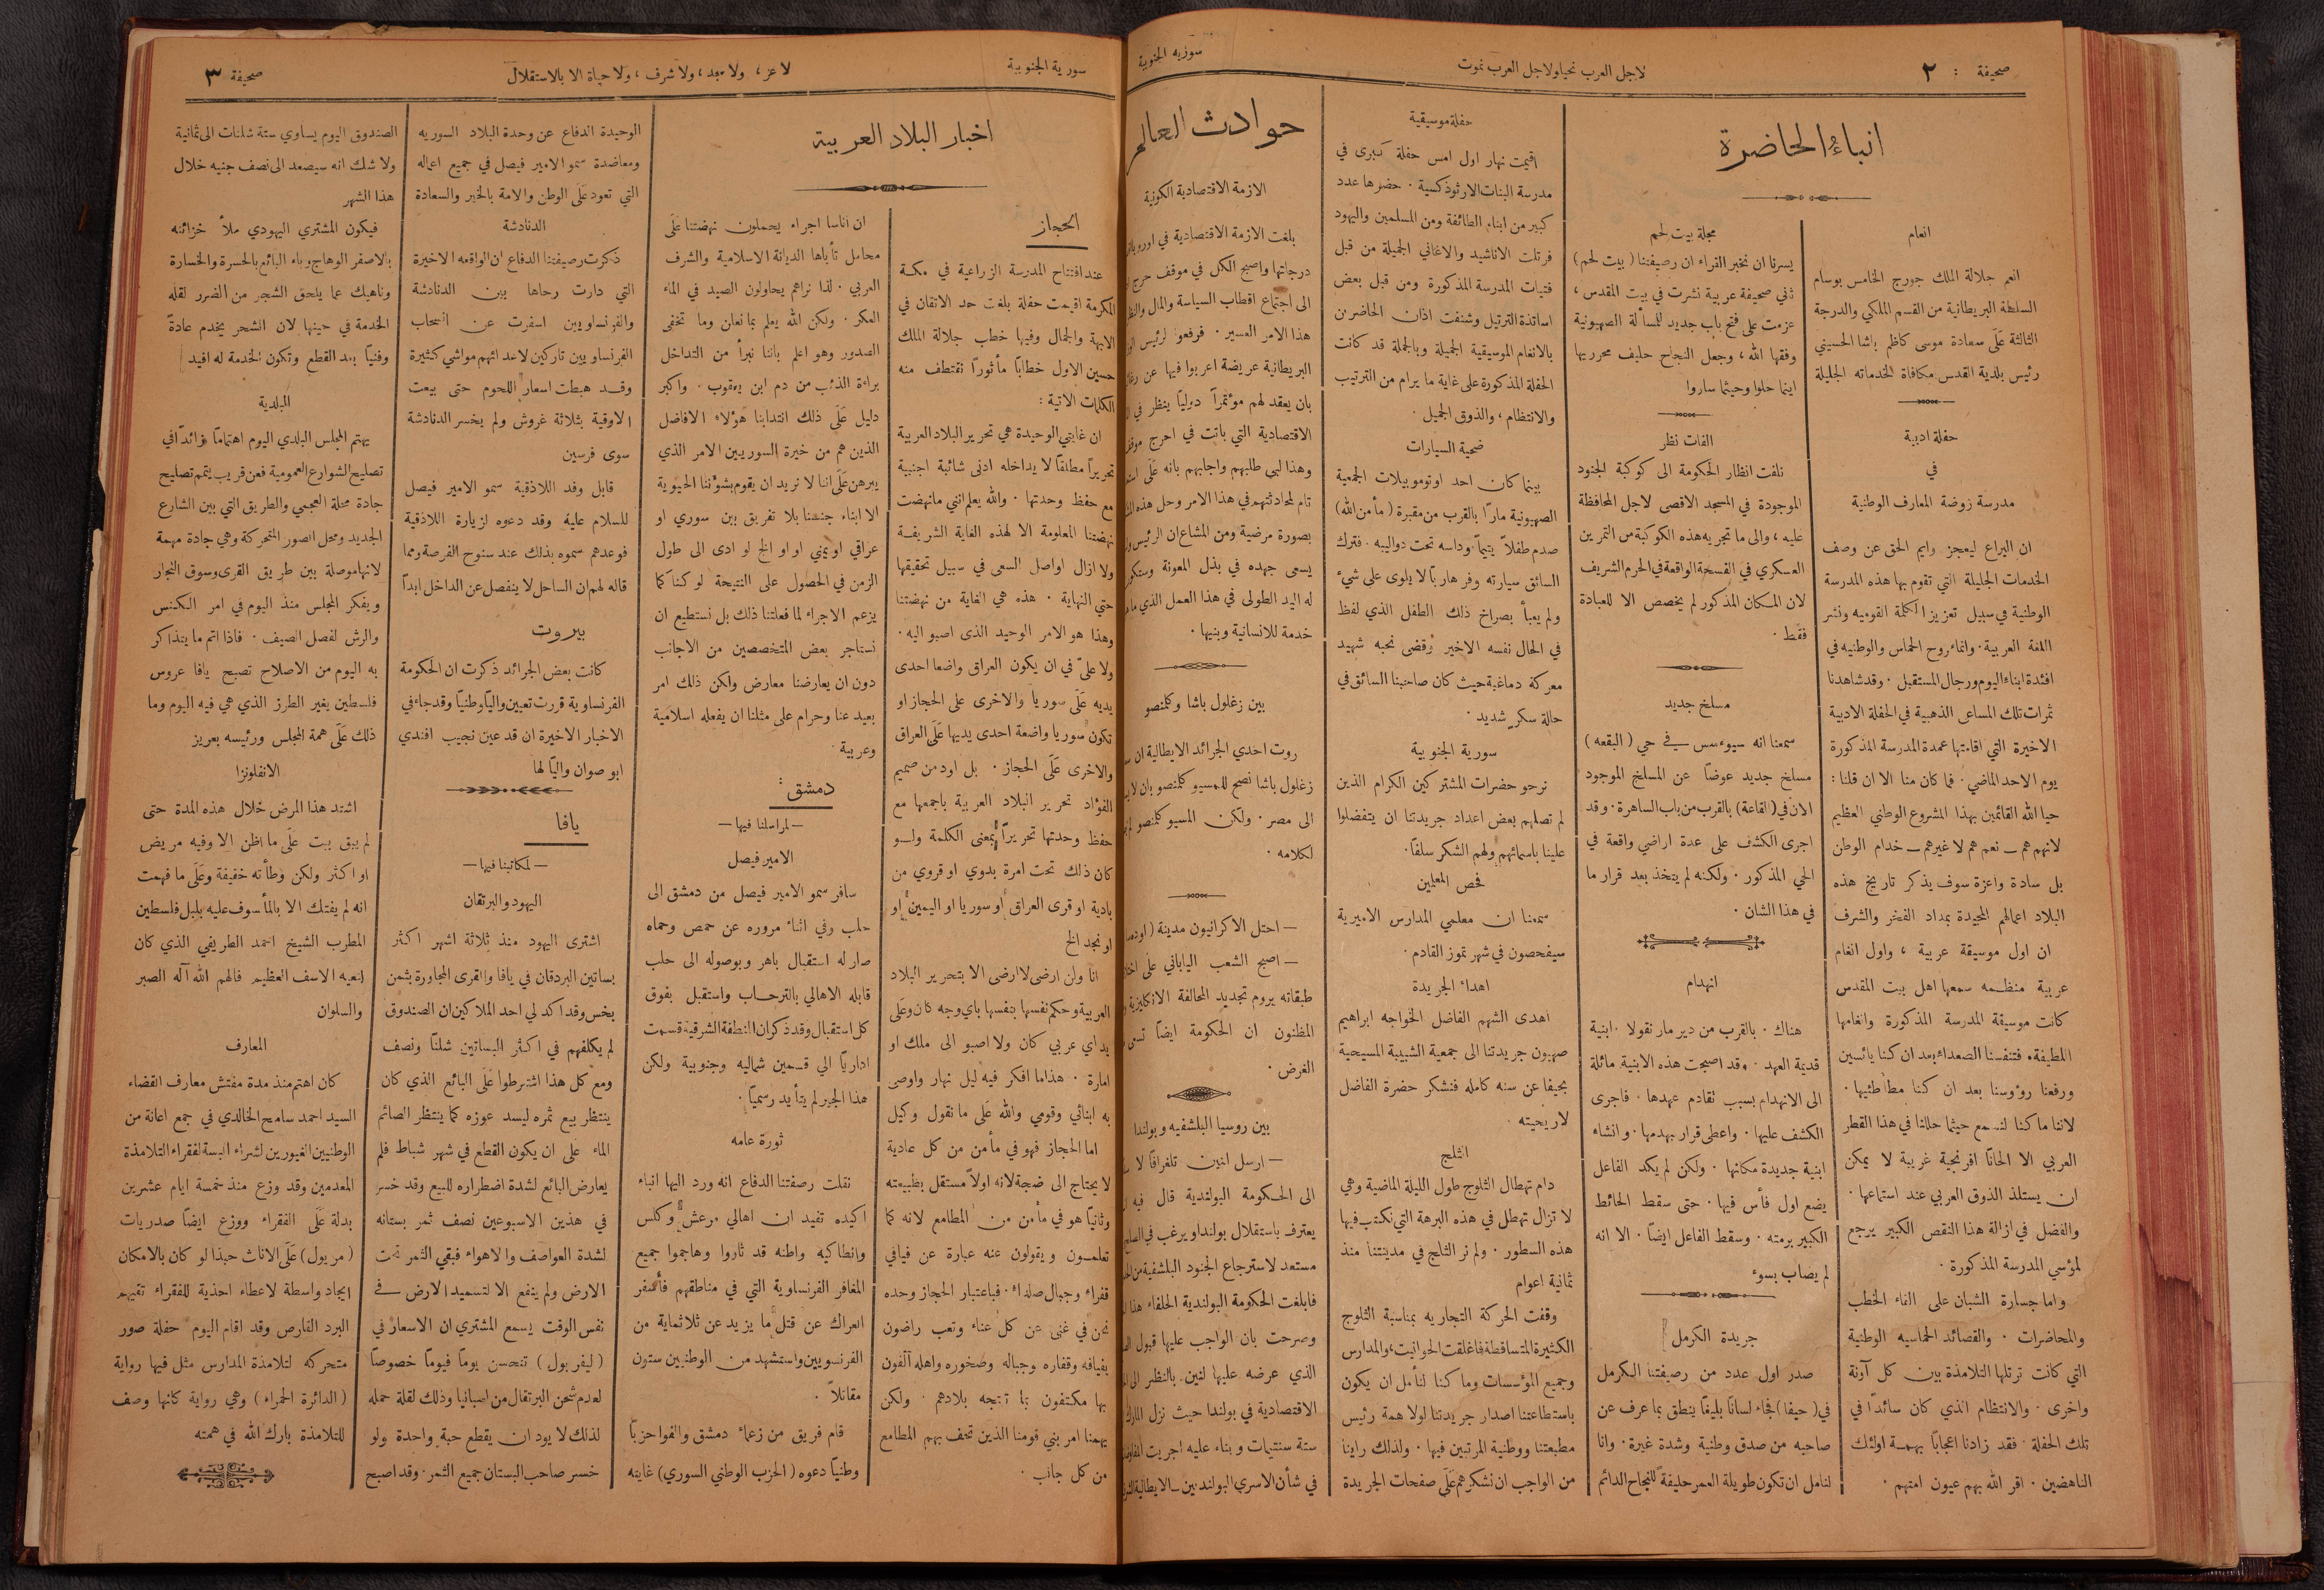 صحيفة : ٢
لاجل العرب نحيا ولاجل العرب نموت
سورية الجنوبية
انباء الحاضرة
انعام
انعم جلالة الملك جورج الخامس بوسام
السلطة البريطانية من القسم الملكي والدرجة
الثالثة عَلَى سعادة موسى كاظم باشا الحسيني
رئيس بلدية القدس مكافاة لخدماته الجليلة
حفلة ادبية
في
مدرسة روضة المعارف الوطنية
ان اليراع ليعجز وايم الحق عن وصف
الخدمات الجليلة التي تقوم بها هذه المدرسة
الوطنية في سبيل تعزيز الكلمة القوميه ونشر
اللغة العربية . وانماء روح الحماس والوطنيه في
افئدة ابناء اليوم ورجال المستقبل . وقد شاهدنا
ثمرات تلك المساعي الذهبية في الحفلة الادبية
الاخيرة التي اقامتها عمدة المدرسة المذكورة
يوم الاحد الماضي . فما كان منا الا ان قلنا :
حيا الله القائمين بهذا المشروع الوطني العظيم
لانهم هم ــ نعم هم لا غيرهم ــ خدام الوطن
بل سادة واعزة سوف يذكر تاريخ هذه
البلاد اعمالهم المجيدة بمداد الفخر والشرف
ان اول موسيقة عربية ، واول انغام
عربية منظمه سمعها اهل بيت المقدس
كانت موسيقة المدرسة المذكورة وانغامها
اللطيفة . فتنفسنا الصعداء بعد ان كنا يائسين
ورفعنا رؤوسنا بعد ان كنا مطاطئيها .
لاننا ما كنا لنسمع حيثما حللنا في هذا القطر
العربي الا الحاناً افرنجية غريبة لا يمكن
ان يستلذ الذوق العربي عند استماعها .
والفضل في ازالة هذا النقص الكبير يرجع
لمؤسي المدرسة المذكورة .
واما جسارة الشبان على القاء الخطب
والمحاضرات . والقصائد الحماسيه الوطنية
التي كانت ترتلها التلامذة بين كل آونة
واخرى . والانتظام الذي كان سائداً في
تلك الحفلة . فقد زادنا اعجاباً بهمة اولئك
الناهضين . اقر الله بهم عيون امتهم .
مجلة بيت لحم
يسرنا ان نخبر القراء ان رصيفتنا ( بيت لحم )
ثني صحيفة عربية نشرت في بيت المقدس ،
عزمت على فتح باب جديد للمسألة الصهيونية
وفقها الله ، وجعل النجاح حليف محرريها
اينما حلوا وحيثما ساروا
الفات نظر
نلفت انظار الحكومة الى كوكبة الجنود
الموجودة في المسجد الاقصى لاجل المحافظة
عليه ، والى ما تجريه هذه الكوكبة من التمرين
العسكري في الفسحة الواقعة في الحرم الشريف
لان المكان المذكور لم يخصص الا للعبادة
فقط .
مسلخ جديد
سمعنا انه سيوءسس في حي ( البقعه )
مسلخ جديد عوضاً عن المسلخ الموجود
الان في ( القاعة ) بالقرب من باب الساهرة . وقد
اجرى الكشف على عدة اراضي واقعة في
الحي المذكور . ولكنه لم يتخذ بعد قرار ما
في هذا الشان .
انهدام
هناك . بالقرب من دير مار نقولا . ابنية
قديمة العهد . وقد اصبحت هذه الابنية مائلة
الى الانهدام بسبب تقادم عهدها . فاجرى
الكشف عليها . واعطى قرار بهدمها . وانشاء
ابنية جديدة مكانها . ولكن لم يكد الفاعل
يضع اول فأس فيها . حتى سقط الحائط
الكبير برمته . وسقط الفاعل ايضاً . الا انه
لم يصاب بسوء
جريدة الكرمل
صدر اول عدد من رصيفتنا الكرمل
في ( حيفا ) فجاء لساناً بليغاً ينطق بما عرف عن
صاحبه من صدق وطنية وشدة غيرة . وانا
لنامل ان تكون طويلة العمر حليفة للنجاح الدائم
حفلة موسيقية
اقيمت نهار اول امس حفلة كبرى في
مدرسة البنات الارثوذكسية . حضرها عدد
كبير من ابناء الطائفة ومن المسلمين واليهود
فرتلت الاناشيد والاغاني الجميلة من قبل
فتيات المدرسة المذكورة ومن قبل بعض
اساتذة الترتيل وشنفت اذان الحاضرين
بالانغام الموسيقية الجميلة وبالجملة قد كانت
الحفلة المذكورة على غاية ما يرام من الترتيب
والانتظام ، والذوق الجميل .
ضحية السيارات
بينما كان احد اوتوموبيلات الجمعية
الصهيونية ماراً بالقرب من مقبرة ( مأمن الله )
صدم طفلاً يتيماً . وداسه تحت دواليبه . فترك
السائق سيارته وفر هارباً لا يلوى على شيء
ولم يعبأ بصراخ ذلك الطفل الذي لفظ
في الحال نفسه الاخير وقضى نحبه شهيد
معركة دماغية حيث كان صاحبنا السائق في
حالة سكر شديد .
سورية الجنوبية
نرجو حضرات المشتركين الكرام الذين
لم تصلهم بعض اعداد جريدتنا ان يتفضلوا
علينا باسمائهم ولهم الشكر سلفاً .
فحص المعلمين
سمعنا ان معلمي المدارس الاميرية
سيفحصون في شهر تموز القادم .
اهداء الجريدة
اهدى الشهم الفاضل الخواجه ابراهيم
صهيون جريدتنا الى جمعية الشبيبة المسيحية
بحيفا عن سنه كامله فنشكر حضرة الفاضل
لاريحيته .
الثلج
دام تهطال الثلوج طول الليلة الماضية وهي
لا تزال تهطل في هذه البرهة التي نكتب فيها
هذه السطور . ولم نر الثلج في مدينتنا منذ
ثمانية اعوام
وقفت الحركة التجاريه بمناسبة الثلوج
الكثيرة المتساقطة فاغلقت الحوانيت، والمدارس
وجميع المؤسسات وما كنا لنأمل ان يكون
باستطاعتنا اصدار جريدتنا لولا همة رئيس
مطبعتنا ووطنية المرتبين فيها . ولذلك راينا
من الواجب ان نشكرهم عَلَى صفحات الجريدة
حوادث العالم
الازمة الاقتصادية الكونية
بلغت الازمة الاقتصادية في اوروبا
درجاتها واصبح الكل في موقف حرج
الى اجتماع اقطاب السياسة والمال
هذا الامر العسير . فرفعوا لرئيس
البريطانية عريضة اعربوا فيها عن
بان يعقد لهم مؤتمراً دولياً ينظر في
الاقتصادية التي باتت في احرج
وهذا لبى طلبهم واجابهم بانه عَلَى
تام لمحادثتهم في هذا الامر وحل هذه
بصورة مرضية ومن المشاع ان الرئيس
يسعى جهده في بذل المعونة
له اليد الطولى في هذا العمل الذي
خدمة للانسانية وبنيها .
بين زغلول باشا وكلمنصو
روت احدي الجرائد الايطالية ان
زغلول باشا نصح للمسيو كلمنصو بان
الى مصر . ولكن المسيو كلمنصو
لكلامه .
ــ احتل الاكرانيون مدينة
ــ اصبح الشعب الياباني على
طبقاته يروم تجديد المحالفة الانكليزية
المظنون ان الحكومة ايضاً
الغرض .
بين روسيا البلشفيه وبولندا
ــ ارسل لنين تلغرافاً لا
الى الحكومة البولندية قال فيه
يعترف باستقلال بولندا ويرغب في
مستعد لاسترجاع الجنود البلشفية من
فابلغت الحكومة البولندية الحلفاء هذا
وصرحت بان الواجب عليها قبول
الذي عرضه عليها لنين . بالنظر الى
الاقتصادية في بولندا حيث نزل
ستة سنتيمات وبناء عليه اجريت
في شأن الاسرى البولندنين ــ الايطالية
سورية الجنوبية
لا عز ، ولا مجد ، ولا شرف ، ولا حياة الا بالاستقلال
صحيفة ٣
اخبار البلاد العربية
الحجاز
عند افتتاح المدرسة الزراعية في مكة
المكرمة اقيمت حفلة بلغت حد الاتقان في
الابهة والجمال وفيها خطب جلالة الملك
حسين الاول خطاباً مأثوراً نقتطف منه
الكلمات الاتية :
ان غايتي الوحيدة هي تحرير البلاد العربية
تحريراً مطلقاً لا يداخله ادنى شائبة اجنبية
مع حفظ وحدتها . والله يعلم انني ما نهضت
نهضتنا المعلومة الا لهذه الغاية الشريفة
ولا ازال اواصل السعي في سبيل تحقيقها
حتي النهاية . هذه هي الغاية من نهضتنا
وهذا هو الامر الوحيد الذي اصبو اليه .
ولا عليّ في ان يكون العراق واضعا احدى
يديه عَلَى سوريا والاخرى على الحجاز او
تكون سوريا واضعة احدى يديها عَلَى العراق
والاخرى عَلَى الحجاز . بل اود من صميم
الفؤاد تحرير البلاد العربية باجمعها مع
حفظ وحدتها تحريراً بمعنى الكلمة ولو
كان ذلك تحت امرة بدوي او قروي من
بادية او قرى العراق او سوريا او اليمن او
او نجد الخ
انا ولن ارضى لا ارضى الا بتحرير البلاد
العربية وحكم نفسها بنفسها باي وجه كان وعَلَى
يد اي عربي كان ولا اصبو الى ملك او
امارة . هذا ما افكر فيه ليل نهار واوصي
به ابنائي وقومي والله عَلَى ما نقول وكيل
اما الحجاز فهو في مأمن من كل عادية
لا يحتاج الى ضجة لانه اولاً مستقل بطبيعته
وثانياً هو في مأمن من المطامع لانه كما
تعلمون ويقولون عنه عبارة عن فيافي
قفراء وجبال صلداء . فباعتبار الحجاز وحده
نحن في غنى عن كل عناء وتعب راضون
بفيافه وقفاره وجباله وصخوره واهله آلفون
بها مكتفون بما تنتجه بلادهم . ولكن
يهمنا امر بني قومنا الذين تحف بهم المطامع
من كل جانب .
ان اناسا اجراء يحملون نهضتنا عَلَى
محامل تأباها الديانة الاسلامية والشرف
العربي . لذا نراهم يحاولون الصيد في الماء
العكر . ولكن الله يعلم بما نعلن وما تخفى
الصدور وهو اعلم باننا نبرأ من التداخل
براءة الذئب من دم ابن يعقوب . واكبر
دليل عَلَى ذلك انتدابنا هؤلاء الافاضل
الذين هم من خيرة السوريين الامر الذي
يبرهن عَلَى اننا لا نريد ان يقوم بشؤننا الحيوية
الا ابناء جنسنا بلا تفريق بين سوري او
عراقي او يمني او او الخ لو ادى الى طول
الزمن في الحصول على النتيجة لو كنا كما
يزعم الاجراء لما فعلنا ذلك بل نستطيع ان
نستاجر بعض المتخصصين من الاجانب
دون ان يعارضنا معارض ولكن ذلك امر
بعيد عنا وحرام على مثلنا ان يفعله اسلامية
وعربية .
دمشق :
ــ لمراسلنا فيها ــ
الامير فيصل
سافر سمو الامير فيصل من دمشق الى
حلب وفي اثناء مروره عن حمص وحماه
صار له استقبال باهر وبوصوله الى حلب
قابله الاهالي بالترحاب واستقبل بفوق
كل استقبال وقد ذكر ان المنطقة الشرقية قسمت
ادارياً الي قسمين شماليه وجنوبية ولكن
هذا الخبر لم يتأيد رسمياً .
ثورة عامه
نقلت رصفتنا الدفاع انه ورد اليها انباء
اكيده تفيد ان اهالي مرعش وكلس
وانطاكيه واطنه قد ثاروا وهاجموا جميع
المغافر الفرنساوية التي في مناطقهم فأسفر
العراك عن قتل ما يزيد عن ثلاثماية من
الفرنسويين واستشهد من الوطنيين ستون
مقاتلاً .
قام فريق من زعماء دمشق والفوا حزباً
وطنياً دعوه ( الحزب الوطني السوري ) غايته
الوحيدة الدفاع عن وحدة البلاد السوريه
ومعاضدة سمو الامير فيصل في جميع اعماله
التي تعود عَلَى الوطن والامة بالخير والسعادة
الدنادشة
ذكرت رصيفتنا الدفاع ان الواقعه الاخيرة
التي دارت رحاها بين الدنادشة
والفرنساويين اسفرت عن انسحاب
الفرنساويين تاركين لاعدائهم مواشي كثيرة
وقد هبطت اسعار اللحوم حتى بيعت
الاوقية بثلاثة غروش ولم يخسر الدنادشة
سوى فرسين
قابل وفد اللاذقية سمو الامير فيصل
للسلام عليه وقد دعوه لزيارة اللاذقية
فوعدهم سموه بذلك عند سنوح الفرصة ومما
قاله لهم ان الساحل لا ينفصل عن الداخل ابداً
بيروت
كانت بعض الجرائد ذكرت ان الحكومة
الفرنساوية قررت تعيين والياً وطنياً وقد جاء في
الاخبار الاخيرة ان قد عين نجيب افندي
ابو صوان والياً لها
يافا
ــ لمكاتبنا فيها ــ
اليهود والبرتقان
اشترى اليهود منذ ثلاثة اشهر اكثر
بساتين البردقان في يافا والقرى المجاورة بثمن
بخس وقد اكد لي احد الملاكين ان الصندوق
لم يكلفهم في اكثر البساتين شلناً ونصف
ومع كل هذا اشترطوا عَلَى البائع الذي كان
ينتظر بيع ثمره ليسد عوزه كما ينتظر الصائم
الماء عَلَى ان يكون القطع في شهر شباط فلم
يعارض البائع لشدة اضطراره للبيع وقد خسر
في هذين الاسبوعين نصف ثمر بستانه
لشدة العواصف والاهواء فبقي الثمر تحت
الارض ولم ينفع الا لتسميد الارض في
نفس الوقت يسمع المشتري ان الاسعار في
( ليفربول ) تتحسن يوماً فيوماً خصوصاً
لعدم شحن البرتقال من اسبانيا وذلك لقلة حمله
لذلك لا يود ان يقطع حبة واحدة ولو
خسر صاحب البستان جميع الثمر . وقد اصبح
الصندوق اليوم يساوي ستة شلنات الى ثمانية
ولا شك انه سيصعد الى نصف جنيه خلال
هذا الشهر
فيكون المشتري اليهودي ملأ خزائنه
بالاصفر الوهاج وباء البائع بالحسرة والخسارة
وناهيك عما يلحق الشجر من الضرر لقله
الخدمة في حينها لان الشجر يخدم عادةً
وفنياً بعد القطع وتكون الخدمة له افيد
البلدية
يهتم المجلس البلدي اليوم اهتماماً زائداً في
تصليح الشوارع العمومية فعن قريب يتمم تصليح
جادة محلة العجمي والطريق التي بين الشارع
الجديد ومحل الصور المتحركة وهي جادة مهمة
لانها موصلة بين طريق القرى وسوق النجار
ويفكر المجلس منذ اليوم في امر الكنس
والرش لفصل الصيف . فاذا اتم ما يتذاكر
به اليوم من الاصلاح تصبح يافا عروس
فلسطين بغير الطرز الذي هي فيه اليوم وما
ذلك عَلَى همة المجلس ورئيسه بعزيز
الانفلونزا
اشتد هذا المرض خلال هذه المدة حتى
لم يبق بيت عَلَى ما اظن الا وفيه مريض
او اكثر ولكن وطأته خفيفة وعَلَى ما فهمت
انه لم يفتك الا بالمأسوف عليه بلبل فلسطين
المطرب الشيخ احمد الطريفي الذي كان
لنعيه الاسف العظيم فالهم الله آله الصبر
والسلوان
المعارف
كان اهتم منذ مدة مفتش معارف القضاء
السيد احمد سامح الخالدي في جمع اعانة من
الوطنيين الغيورين لشراء البسة لفقراء التلامذة
المعدمين وقد وزع منذ خمسة ايام عشرين
بدلة عَلَى الفقراء ووزع ايضاً صدريات
( مريول ) عَلَى الاناث حبذا لو كان بالامكان
ايجاد واسطة لاعطاء احذية للفقراء تقيهم
البرد القارص وقد اقام اليوم حفلة صور
متحركه لتلامذة المدارس مثل فيها رواية
( الدائرة الحمراء ) وهي رواية كانها وصف
للتلامذة بارك الله في همته